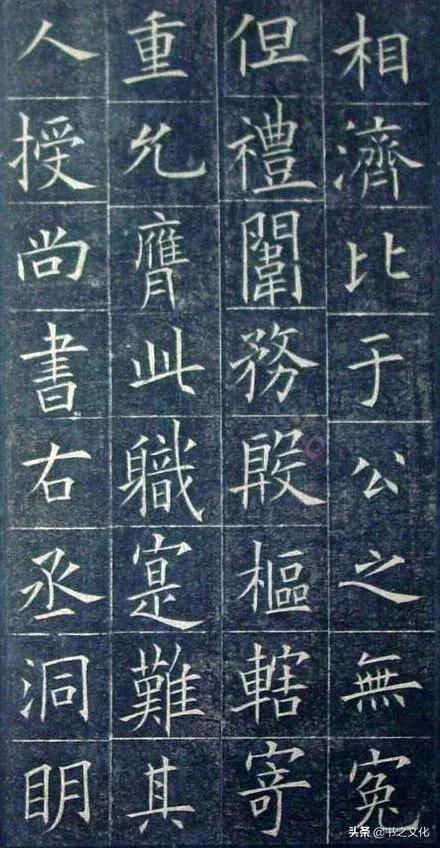 相濟比于公之無冤
但禮闈務殷樞轄寄
重允膺此職寔難其
人授尚書右丞洞明
头条 @书之文化